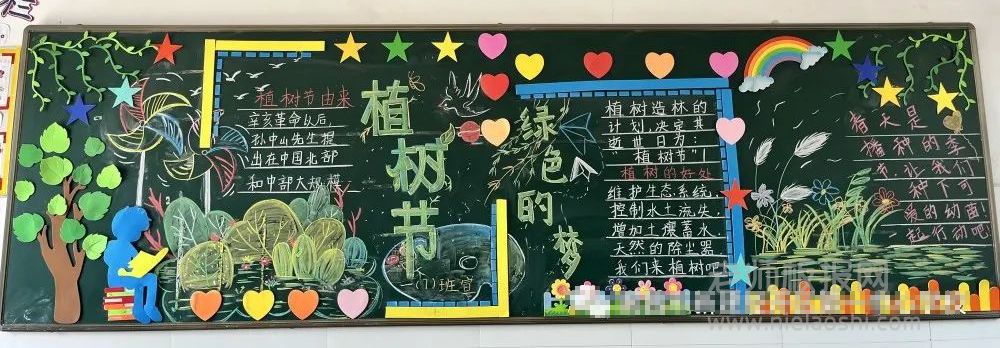 栏
植树节由来
辛亥革命以后
孙中山先生提
出在中国北部
和中部大规模
植树节
一(7)班宣
绿色的梦
植树造林的
计划,决定其
逝世日为:
"植树节"!
植树的好处
维护生态系统
控制水土流失
增加土壤蓄水
天然的除尘器
我们来植树吧
春天是
播种的季
节,让我们
种下可
爱的幼苗!
一起行动吧!
老师板报网